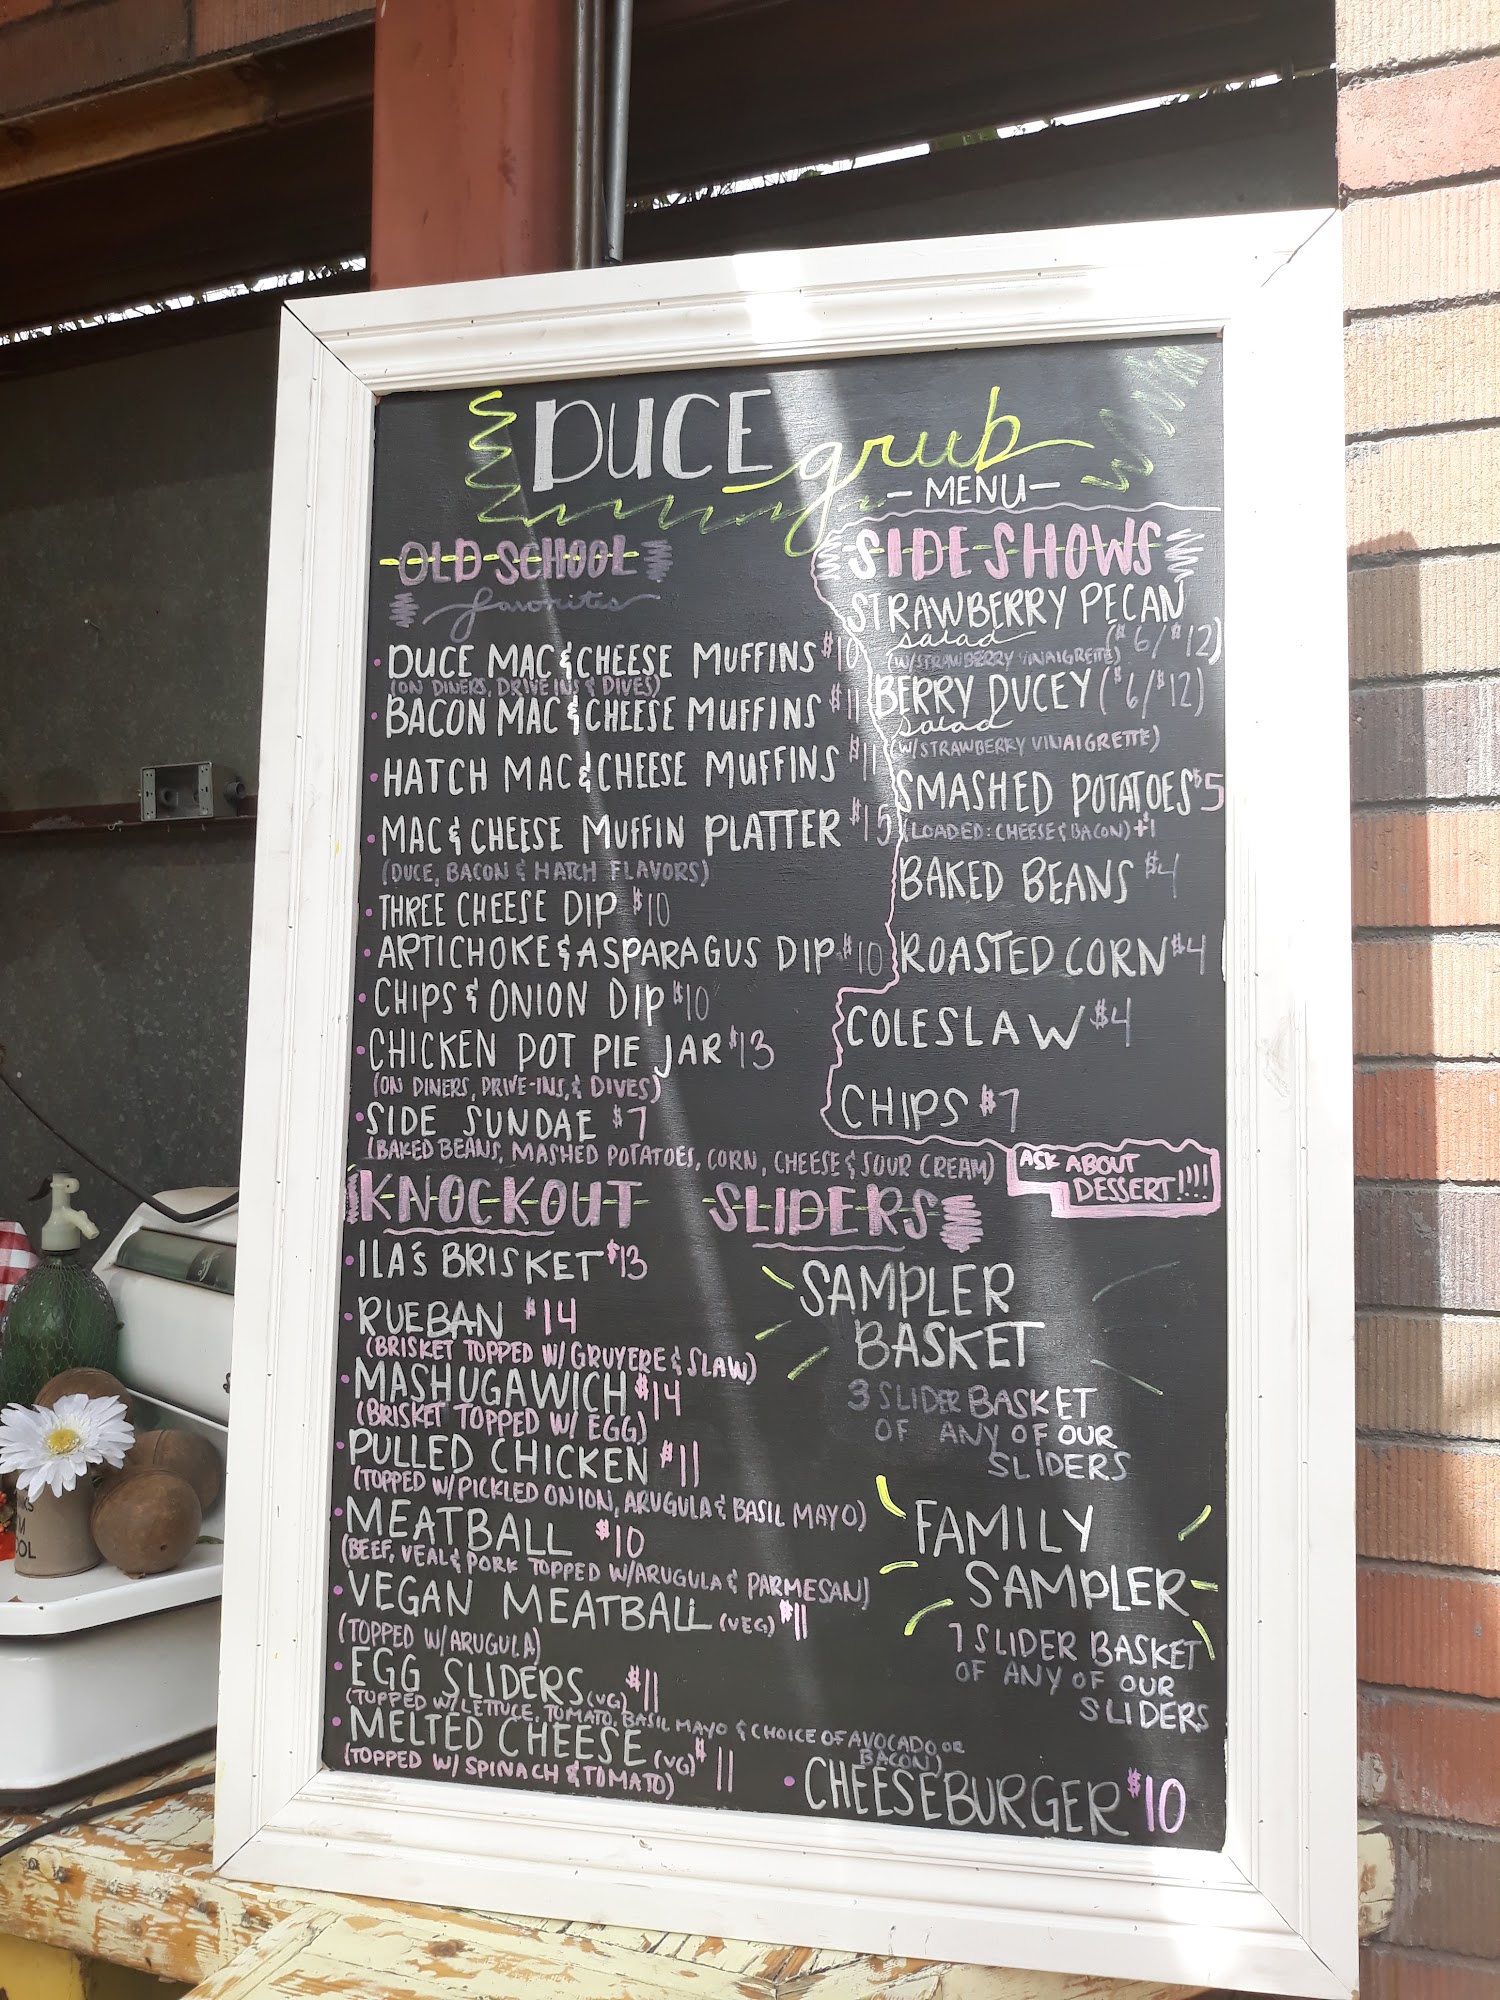 DUCE grub
- MENU -
OLD SCHOOL
favorites
DUCE MAC & CHEESE MUFFINS $10
(ON DINERS, DRIVE INS & DIVES)
BACON MAC & CHEESE MUFFINS $11
HATCH MAC & CHEESE MUFFINS $11
MAC & CHEESE MUFFIN PLATTER $15
(DUCE, BACON & HATCH FLAVORS)
THREE CHEESE DIP $10
ARTICHOKE & ASPARAGUS DIP $10
CHIPS & ONION DIP $10
CHICKEN POT PIE JAR $13
(ON DINERS, DRIVE-INS, & DIVES)
SIDE SUNDAE $7
(BAKED BEANS, MASHED POTATOES, CORN, CHEESE & SOUR CREAM)
SIDE SHOWS
STRAWBERRY PECAN
salad ($6/$12)
(W/STRAWBERRY VINAIGRETTE)
BERRY DUCEY ($6/$12)
salad
(W/STRAWBERRY VINAIGRETTE)
SMASHED POTATOES $5
(LOADED: CHEESE & BACON) +$1
BAKED BEANS $4
ROASTED CORN $4
COLESLAW $4
CHIPS $1
ASK ABOUT
DESSERT!!!!
KNOCKOUT SLIDERS
ILA'S BRISKET $13
RUEBAN $14
(BRISKET TOPPED W/ GRUYERE & SLAW)
MASHUGAWICH $14
(BRISKET TOPPED W/ EGG)
PULLED CHICKEN $11
(TOPPED W/PICKLED ONION, ARUGULA & BASIL MAYO)
MEATBALL $10
(BEEF, VEAL & PORK TOPPED W/ARUGULA & PARMESAN)
VEGAN MEATBALL (VEG) $11
(TOPPED W/ARUGULA)
EGG SLIDERS (VG) $11
(TOPPED W/LETTUCE, TOMATO, BASIL MAYO & CHOICE OF AVOCADO OR
BACON)
MELTED CHEESE (VG) $11
(TOPPED W/ SPINACH & TOMATO)
SAMPLER
BASKET
3 SLIDER BASKET
OF ANY OF OUR
SLIDERS
FAMILY
SAMPLER
7 SLIDER BASKET
OF ANY OF OUR
SLIDERS
CHEESEBURGER $10